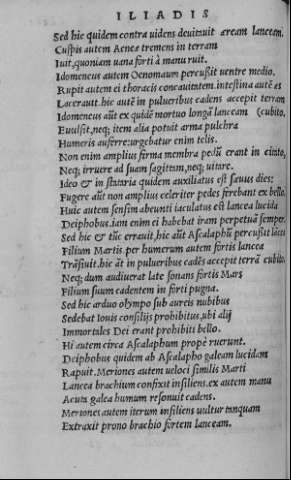 ILIADIS
Sed hic quidem contra uidens deuitauit æream lanceam.
Cuspis autem Aeneæ tremens in terram
Iuit, quoniam uana forti à manu ruit.
Idomeneus autem Oenomaum percußit uentre medio.
Rupit autem ei thoracis concauitatem. intestina autē æs
Lacerauit. hic autē in pulueribus cadens accepit terram
Idomeneus aūt ex quidē mortuo longā lanceam (cubito.
Euulsit, neq; item alia potuit arma pulchra
Humeris auferre: urgebatur enim telis.
Non enim amplius firma membra pedū erant in eūnto,
Neq; irruere ad suam sagittam, neq; uitare.
Ideo & in stataria quidem auxiliatus est sæuus dies:
Fugere aūt non amplius celeriter pedes ferebant ex bello.
Huic autem sensim abeunti iaculatus est lancea lucida
Deiphobus. iam enim ei habebat iram perpetuā semper.
Sed hic & tūc errauit. hic aūt Ascalaphū percußit lācea
Filium Martis. per humerum autem fortis lancea
Trāsiuit. hic āt in pulueribus cadēs accepit terrā cubito.
Neq; dum audiuerat late sonans fortis Mars
Filium suum cadentem in forti pugna.
Sed hic arduo olympo sub aureis nubibus
Sedebat Iouis consilijs prohibitus, ubi alij
Immortales Dei erant prohibiti bello.
Hi autem circa Ascalaphum propè ruerunt.
Deiphobus quidem ab Ascalapho galeam lucidam
Rapuit. Meriones autem ueloci similis Marti
Lancea brachium confixit insiliens. ex autem manu
Acuta galea humum resonuit cadens.
Meriones autem iterum insiliens uultur tanquam
Extraxit prono brachio fortem lanceam.